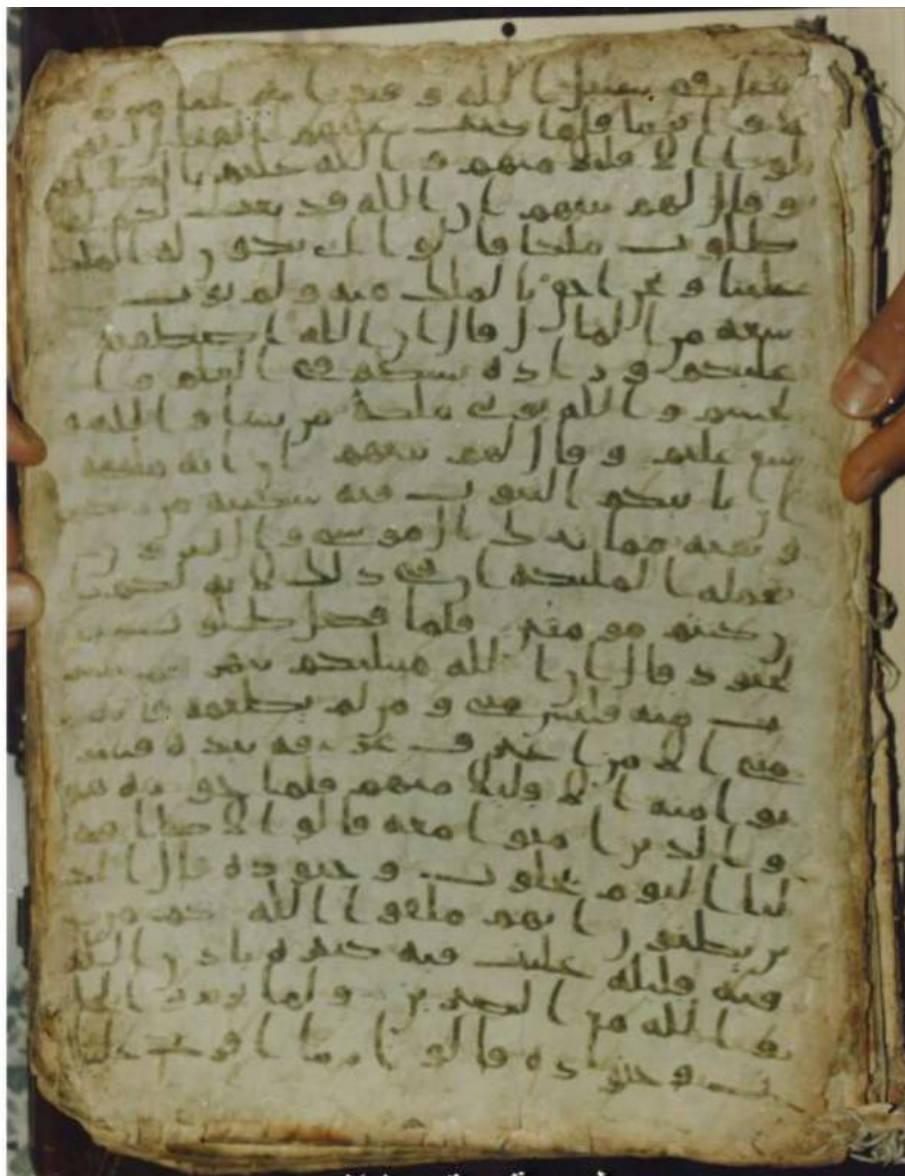 في سبيل الله وقد
وابنينا فلما كتب عليهم القتال تو
لوا الا قليلا منهم والله عليم بالظلمين
وقال لهم نبيهم ان الله قد بعث لكم
طلوت ملكا قالوا انى يكون له الملك
علينا ونحن احق بالملك منه ولم يوت
سعة من المال قال ان الله اصطفيه
عليكم وزاده بسطة في العلم وا
لجسم والله يوتي ملكه من يشا والله و
سع عليم وقال لهم نبيهم ان اية ملكه
ان ياتيكم التبوت فيه سكينة من ربكم
وبقية مما ترك ال موسى وال هرون
تحمله الملئكة ان في ذلك لاية لكم ا
ن كنتم مومنين فلما فصل طلوت با
لجنود قال ان الله مبتليكم بنهر فمن شر
ب منه فليس مني ومن لم يطعمه فانه
مني الا من اغترف غرفة بيده فشر
بوا منه الا قليلا منهم فلما جوزه هو
والذين امنوا معه قالوا لا طاقة
لنا اليوم بجلوت وجنوده قال الذ
ين يظنون انهم ملقوا الله كم من
فئة قليلة غلبت فئة كثيرة باذن الله
والله مع الصبرين ولما برزوا لجلو
ت وجنوده قالوا ربنا افرغ علينا